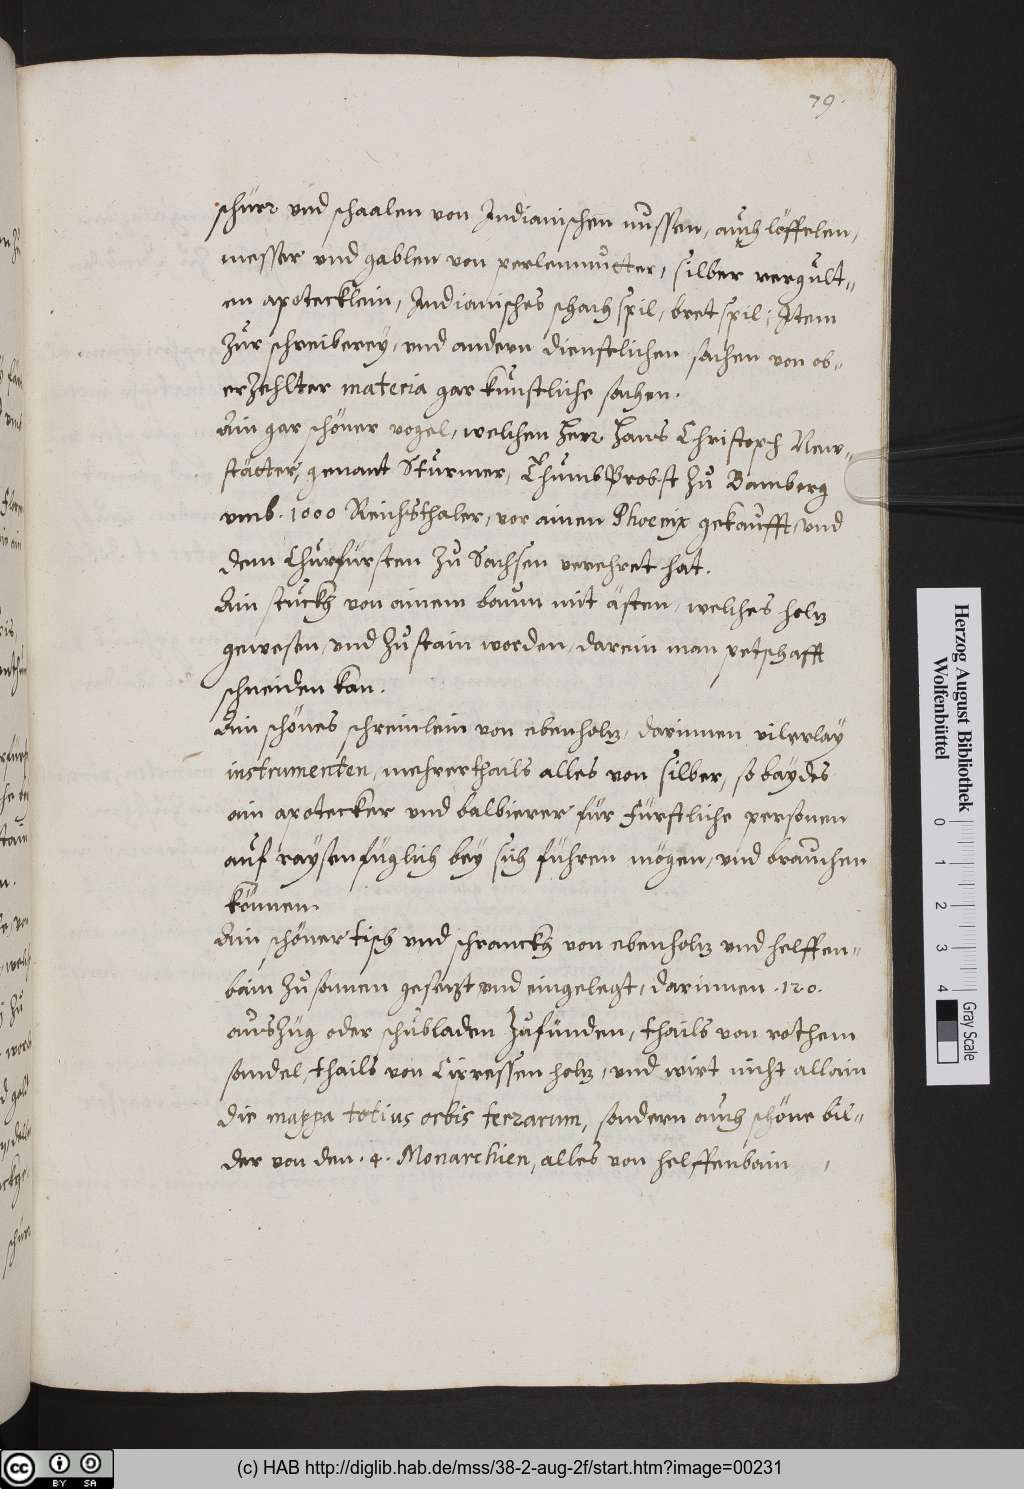 79.
schürr vnd schaalen von Indianischen nussen, auch löffelen,
messer vnd gablen von perlenmutter, silber vergult=
en apotecklein, Indianisches schach spil, bret spil, Item
Zur schreiberey, vnd andern dienstlichen sachen von ob=
erzehlter materia gar kunstliche sachen.
Ain gar schöner vogel, welchen Herr Hans Christoph New=
stätter, genant Sturmer, ThumbProbst Zu Bamberg
vmb. 1000 Reichsthaler, vor ainen Phoenix gekaufft, vnd
dem Churfürsten Zu Sachsen verehret hat.
Ain stuckh von ainem baum mit ästen, welches holtz
gewesen, vnd Zu stain worden, darein man petschafft
schneiden kan.
Ain schönes schreinlein von ebenholtz, darinnen vilerlay
instrumenten, mehrerthails alles von silber, so baydes
ain apotecker vnd balbierer für Fürstliche personen
auf raysen füglich bey sich führen mögen, vnd brauchen
können.
Ain schöner tisch vnd schranckh von ebenholtz vnd helffen=
bain Zusamen gesetzt vnd eingelegt, darinnen .120.
ausZüg oder schubladen Zufünden, thails von rothem
sandel, thails von Cipressen holtz, vnd wirt nicht allain
die mappa totius orbis terrarum, sondern auch schöne bil=
der von den .4. Monarchien, alles von helffenbain,
Herzog August Bibliothek
Wolfenbüttel
0 1 2 3 4
Gray Scale
cc BY SA
(c) HAB http://diglib.hab.de/mss/38-2-aug-2f/start.htm?image=00231